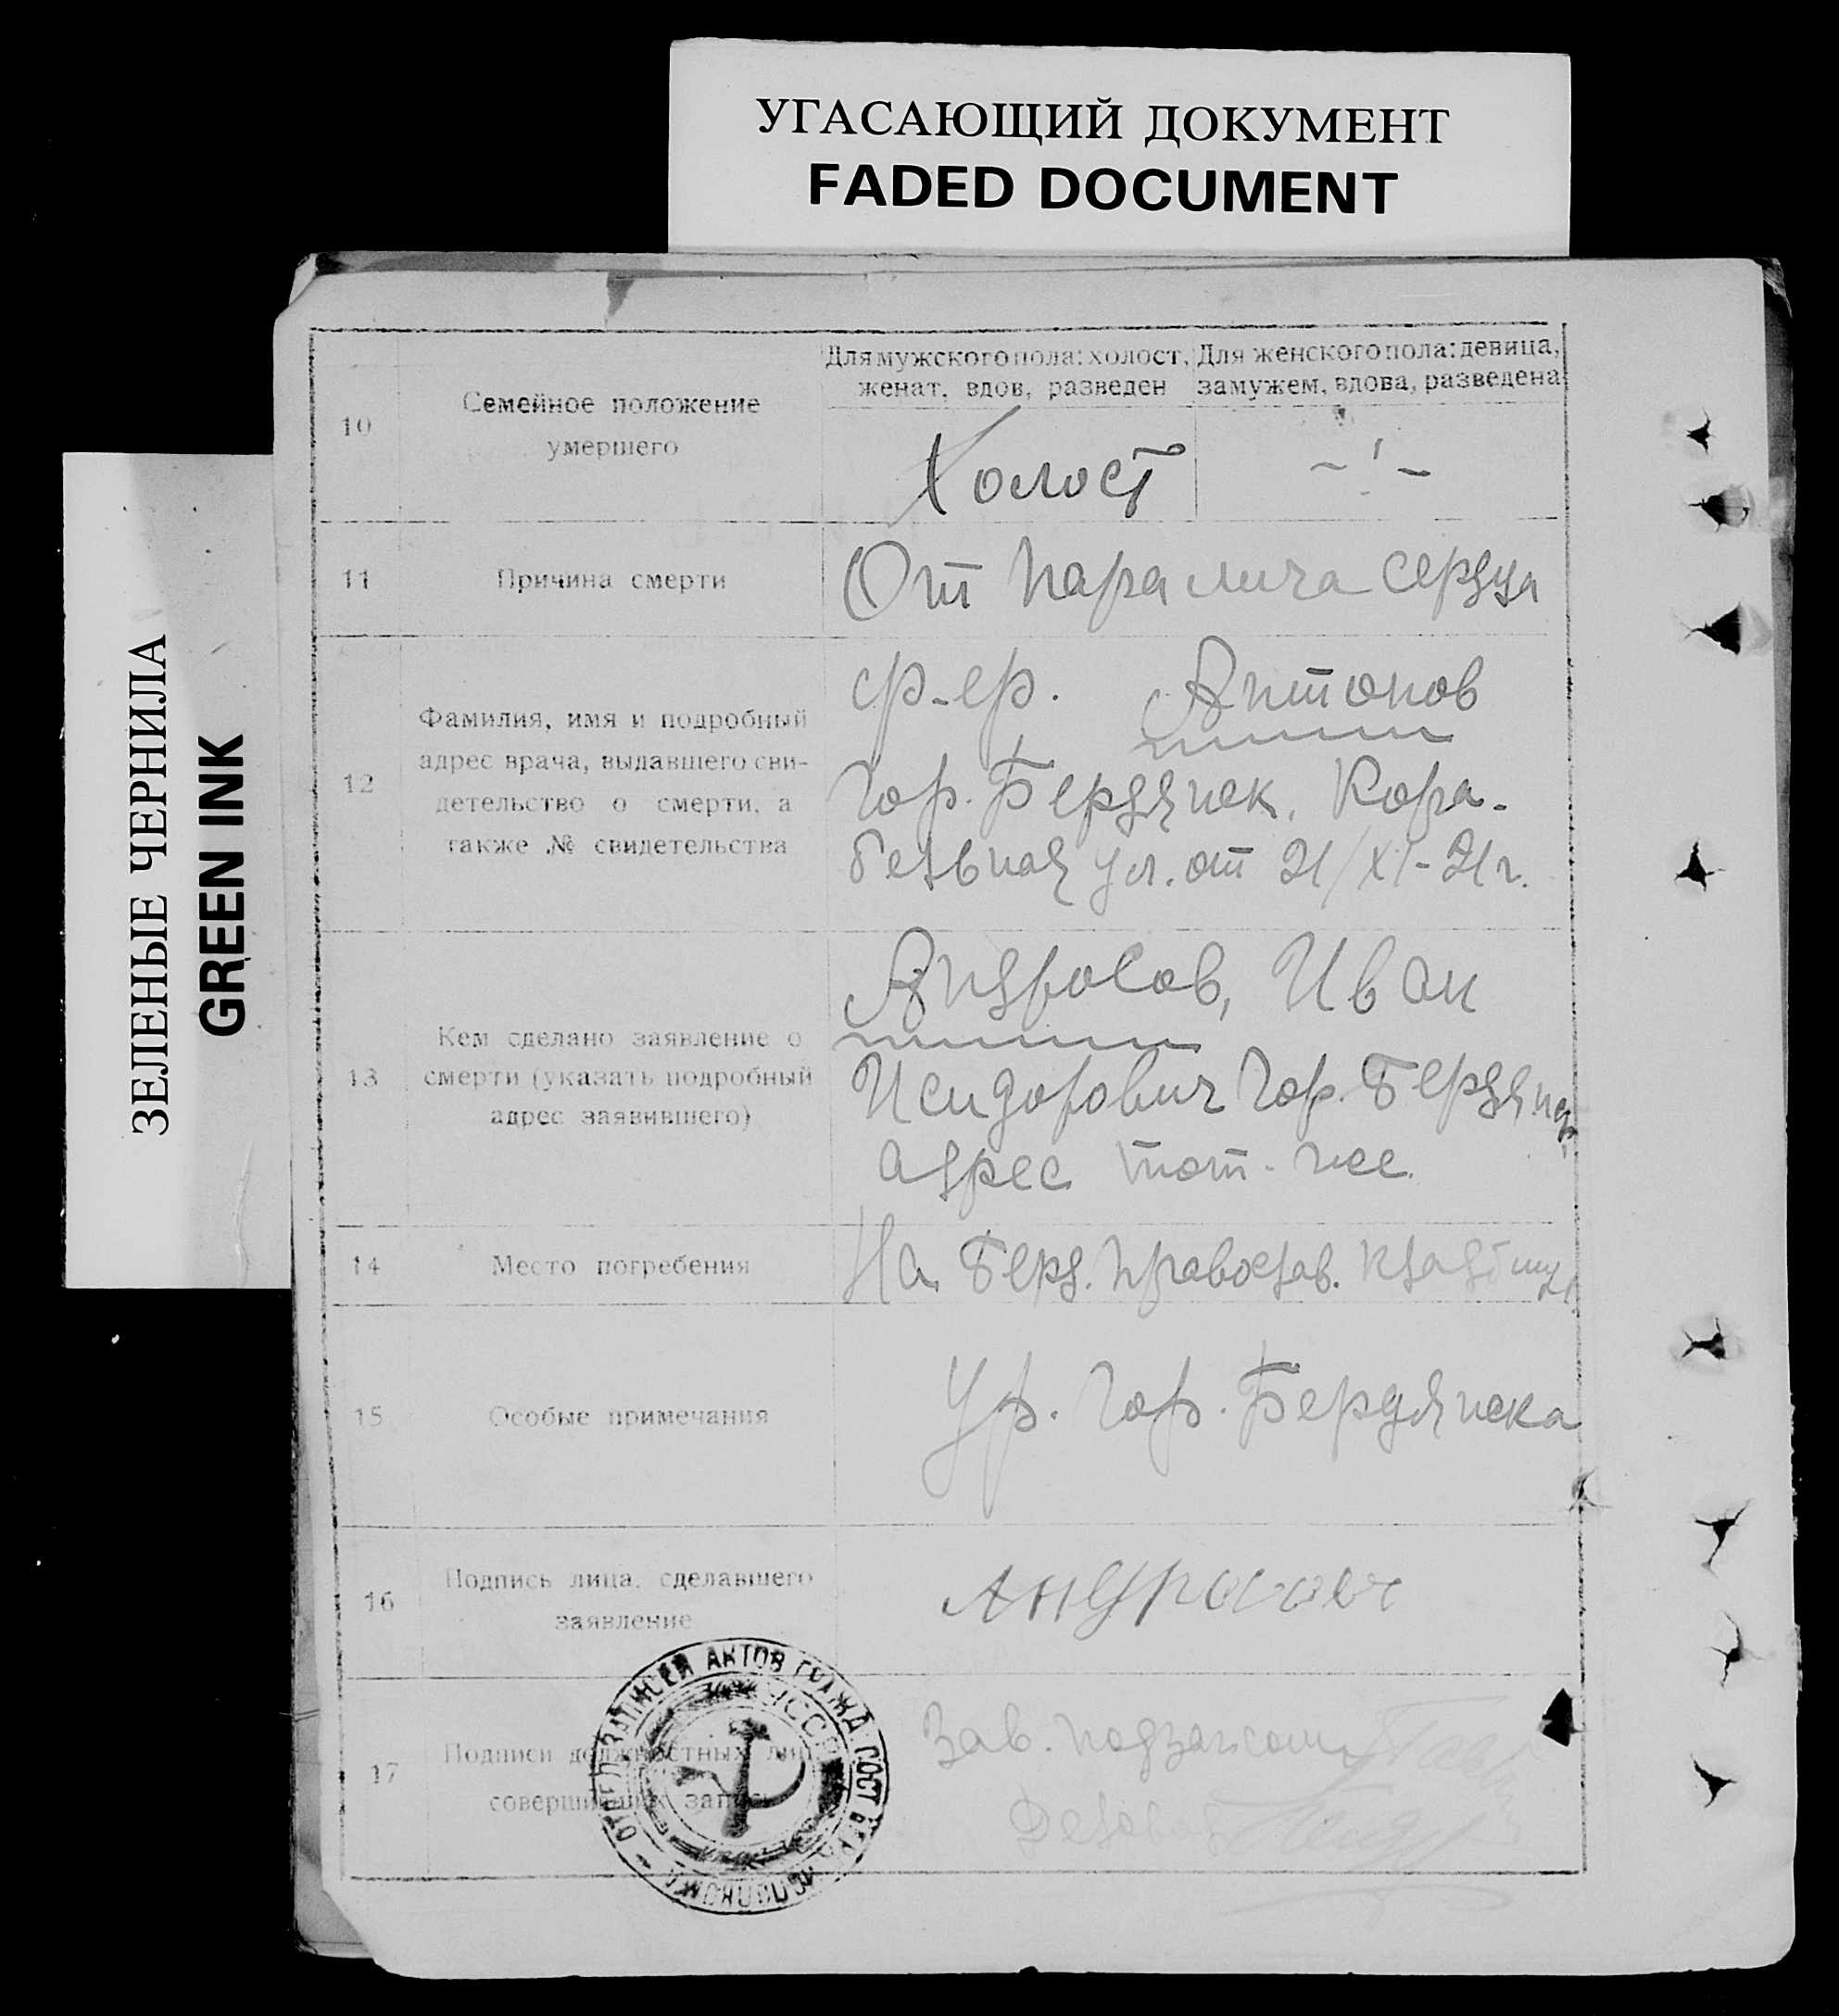 УГАСАЮЩИЙ ДОКУМЕНТ
FADED DOCUMENT
ЗЕЛЕНЫЕ ЧЕРНИЛА
GREEN INK
10
Семейное положение
умершего
Для мужского пола: холост,
женат, вдов, разведен
Для женского пола: девица,
замужем, вдова, разведена
Холост
-"-
11
Причина смерти
От паралича сердца
12
Фамилия, имя и подробный
адрес врача, выдавшего сви-
детельство о смерти, а
также № свидетельства
ср-ер. Антонов
Гор. Бердянск, Кора-
бельная ул. от 21/XI-21г.
13
Кем сделано заявление о
смерти (указать подробный
адрес заявившего)
Андросов, Иван
Исидорович Гор. Бердянск
адрес тот-же.
14
Место погребения
На Берд. православ. кладбище
15
Особые примечания
Ур. Гор. Бердянска
16
Подпись лица, сделавшего
заявление
Андросов
17
Подписи должностных лиц,
совершивших запись
Зав. подзагсом
Делов
ОТДЕЛ ЗАПИСЕЙ АКТОВ ГРАЖД. СОСТ.
УССР